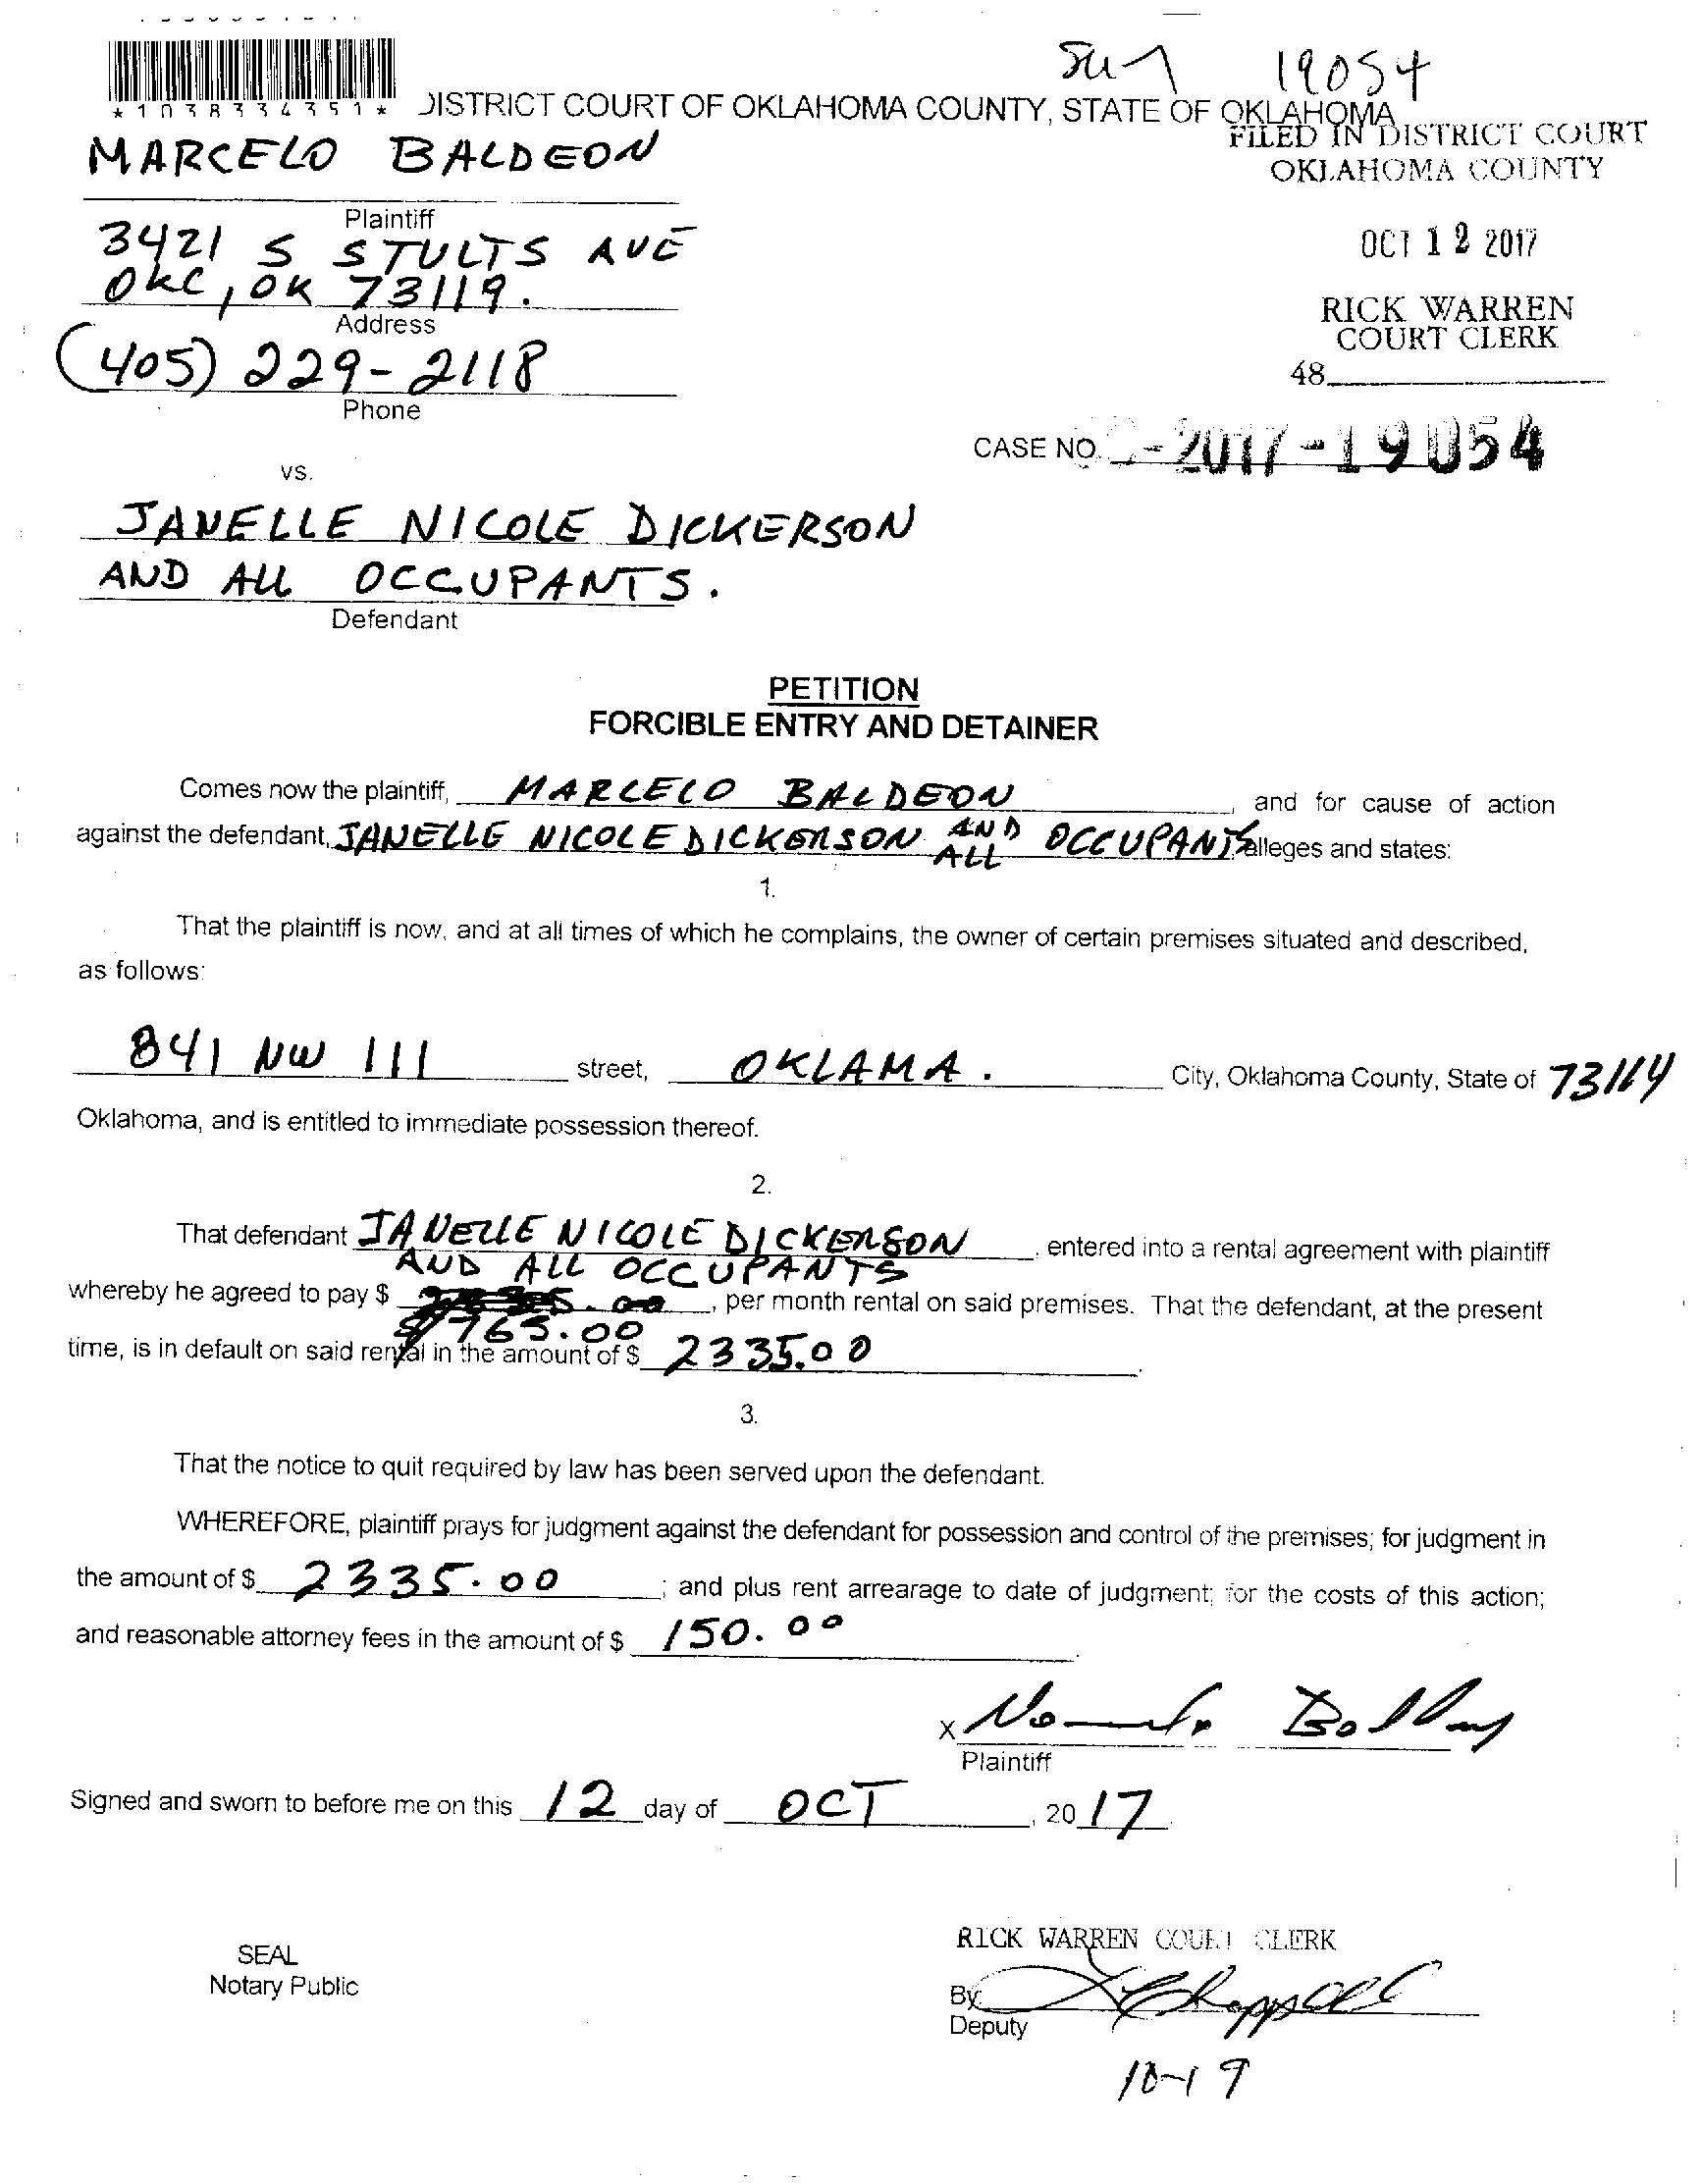 19054
*1038334351*
DISTRICT COURT OF OKLAHOMA COUNTY, STATE OF OKLAHOMA
FILED IN DISTRICT COURT
OKLAHOMA COUNTY
MARCELO BALDEON
Plaintiff
3421 S STULTS AVE
OKC, OK 73119.
Address
(405) 229-2118
Phone
OCT 12 2017
RICK WARREN
COURT CLERK
48
CASE NO. -2017-19054
VS.
JANELLE NICOLE DICKERSON
AND ALL OCCUPANTS.
Defendant
PETITION
FORCIBLE ENTRY AND DETAINER
Comes now the plaintiff, MARCELO BALDEON, and for cause of action
against the defendant, JANELLE NICOLE DICKERSON AND ALL OCCUPANTS alleges and states:
1.
That the plaintiff is now, and at all times of which he complains, the owner of certain premises situated and described,
as follows:
841 NW 111 street, OKLAMA. City, Oklahoma County, State of 73114
Oklahoma, and is entitled to immediate possession thereof.
2.
That defendant JANELLE NICOLE DICKERSON, entered into a rental agreement with plaintiff
AND ALL OCCUPANTS
whereby he agreed to pay $ , per month rental on said premises. That the defendant, at the present
$765.00
time, is in default on said rental in the amount of $ 2335.00.
3.
That the notice to quit required by law has been served upon the defendant.
WHEREFORE, plaintiff prays for judgment against the defendant for possession and control of the premises; for judgment in
the amount of $ 2335.00; and plus rent arrearage to date of judgment; for the costs of this action;
and reasonable attorney fees in the amount of $ 150.00.
X
Plaintiff
Signed and sworn to before me on this 12 day of OCT, 20 17.
SEAL
Notary Public
RICK WARREN COURT CLERK
By: Chappell
Deputy
10-19